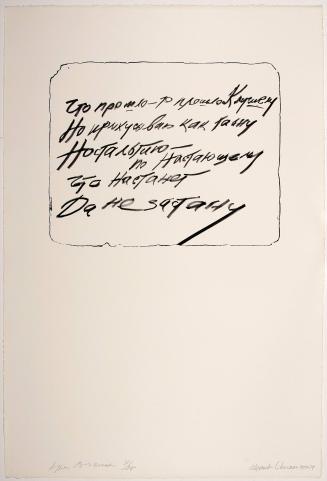 Что прошло-то прошло К лучшему
Но прикусываю как тайну
Ностальгию
по Настоящему
Что Настанет
Да не застану